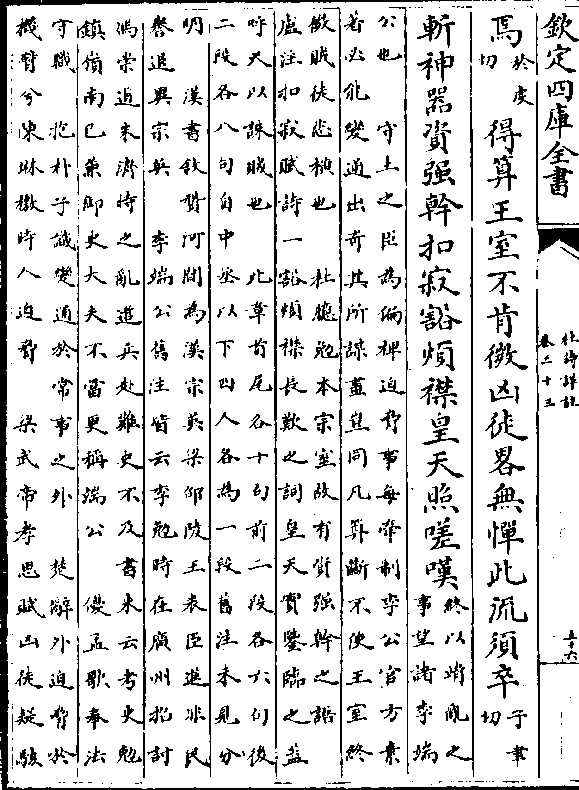 欽定四庫全書
杜詩詳註
卷二十三
五十六
焉於虔切得算王室不肯微凶徒畧無憚此流須卒子聿切
斬神器資强幹扣寂豁煩襟皇天照嗟嘆終以靖亂之
事望諸李端
公也 守土之臣為偏裨迫脅事每牽制李公官方素
著必能變通出奇其所謀蓋望同凡算斷不使王室終
微賊徒恣橫也 杜臆勉本宗室故有資强幹之語
盧注扣寂賦詩一豁煩襟長歎之詞皇天實鑒臨之蓋
呼天以誅賊也 此章首尾各十句前二段各六句後
二段各八句自中丞以下四人各為一段舊注未見分
明 漢書敘贊河間為漢宗英梁邵陵王表臣進非民
譽退異宗英 李端公舊注皆云李勉時在廣州招討
馮崇道朱濟時之亂進兵赴難史不及書朱云考史勉
鎮嶺南已兼御史大夫不當更稱端公 優孟歌奉法
守職 抱朴子識變通於常事之外 楚辭外迫脅於
機臂兮陳琳檄時人迫脅 梁武帝孝思賦凶徒疑駭